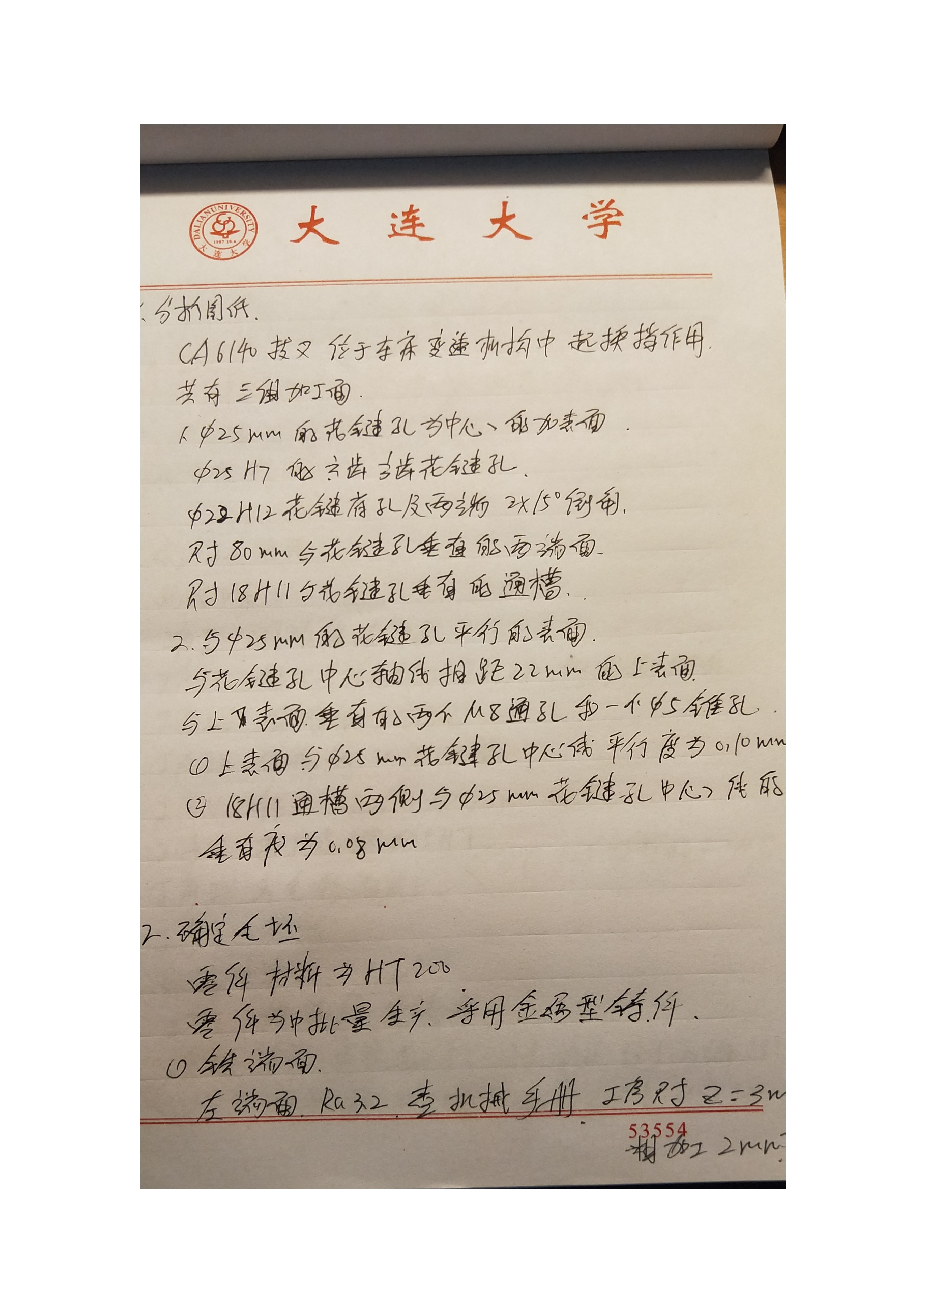 DALIAN UNIVERSITY
1987.10.6
大连大学
大连大学
1.分析图纸.
CA6140拨叉 位于车床变速机构中 起换挡作用.
共有 三组加工面.
1. φ25mm的花键孔为中心、的加表面.
φ25H7 的 六齿 花键孔.
φ22H12 花键底孔及两端 2×15°倒角.
尺寸80mm与花键孔垂直的两端面.
尺寸18H11与花键孔垂直的通槽.
2.与φ25mm的花键孔平行的表面.
与花键孔中心轴线相距22mm的上表面
与上表面垂直的两个M8通孔和一个φ5锥孔.
① 上表面与φ25mm花键孔中心线平行度为0.10mm
② 18H11通槽两侧与φ25mm花键孔中心线的
垂直度为0.08mm
2.确定毛坯
零件材料为HT200
零件为中批量生产、采用金属型铸件.
① 铣端面.
左端面. Ra3.2. 查机械手册 工序尺寸 Z=3m
53554
加工 2mm